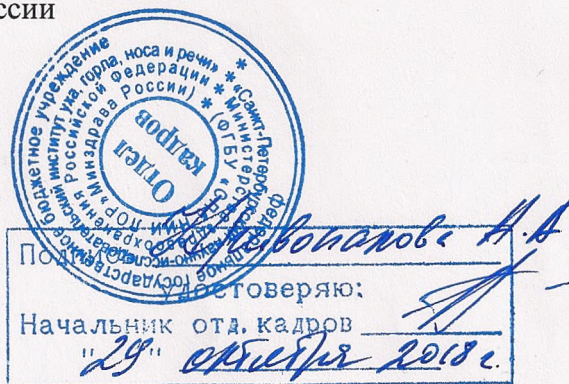 ссии
Федеральное государственное бюджетное учреждение
«Санкт-Петербургский научно-исследовательский институт уха, горла, носа и речи»
Министерства здравоохранения Российской Федерации
(ФГБУ «СПб НИИ ЛОР» Минздрава России)
Отдел
кадров
Подпись Н. А
Удостоверяю:
Начальник отд. кадров
"29" октября 2018 г.